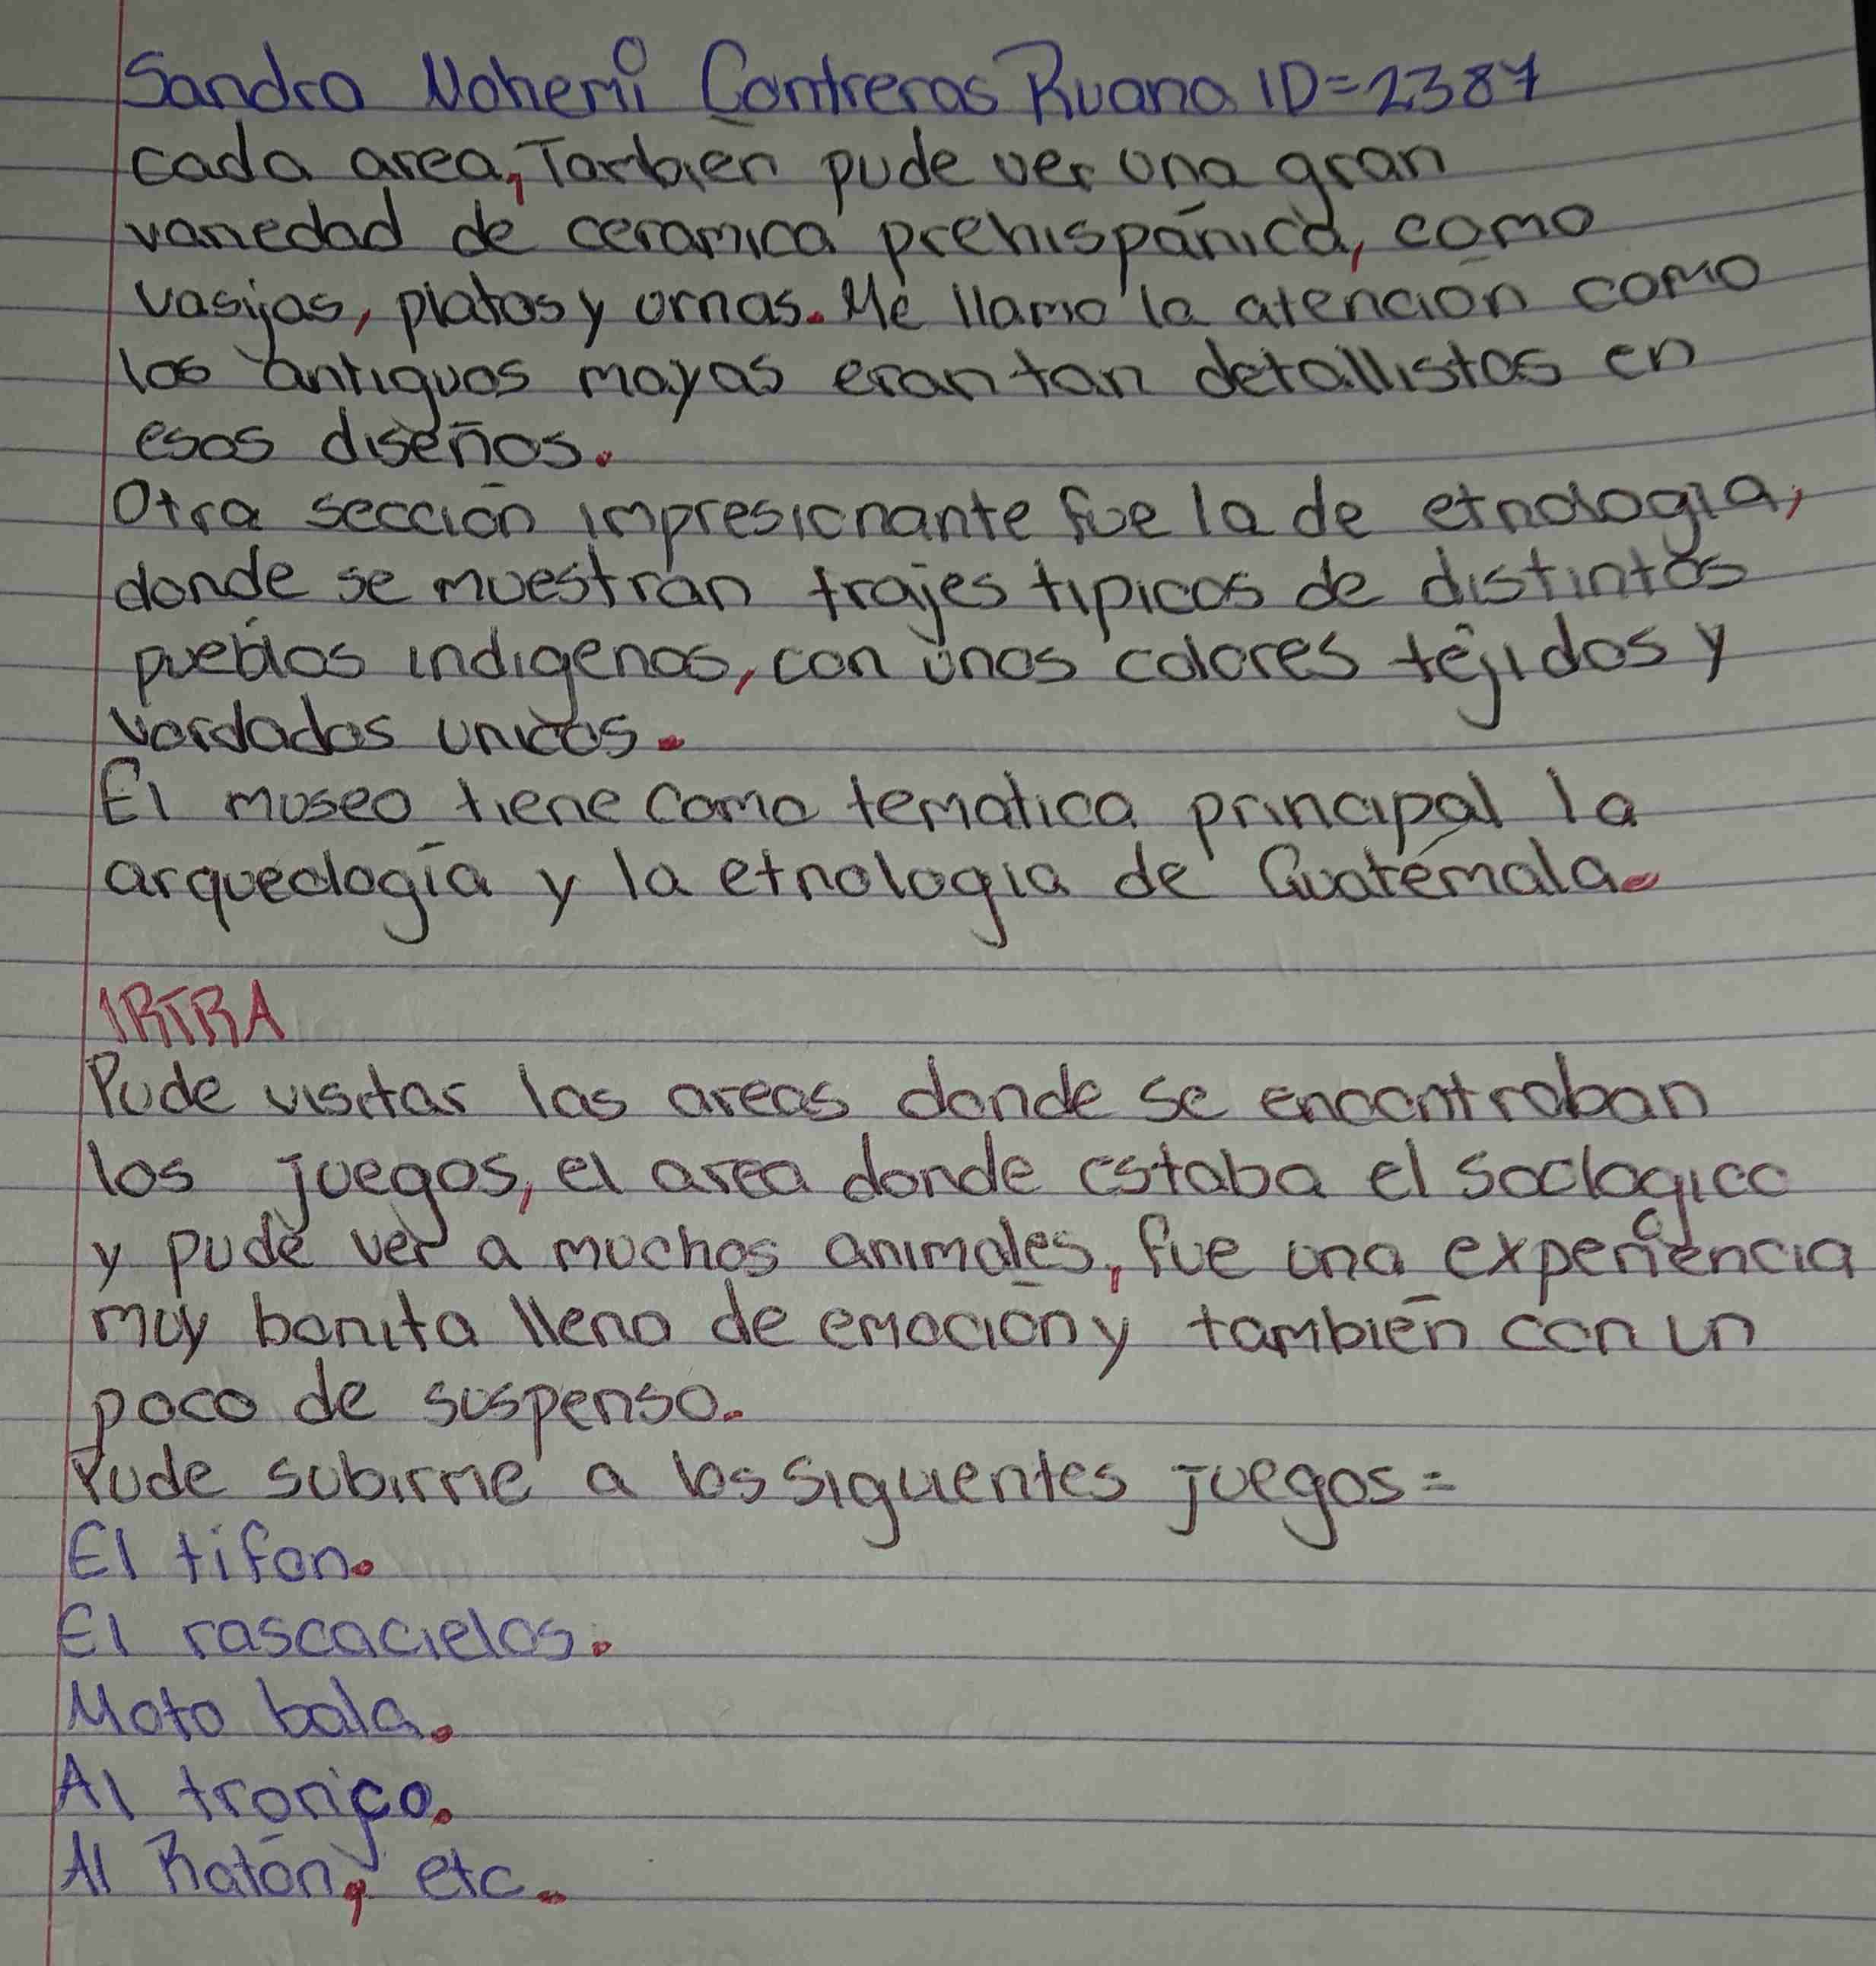 Sandra Nohemí Contreras Ruana ID=2387
cada area, Tambien pude ver una gran
variedad de ceramica prehispánica, como
vasijas, platos y ornas. Me llamo la atención como
los antiguos mayas eran tan detallistas en
esos diseños.
Otra sección impresionante fue la de etnologia,
donde se muestran trajes tipicos de distintos
pueblos indigenas, con unos colores tejidos y
vordados unicos.
El museo tiene como tematica principal la
arqueología y la etnologia de Guatemala.
IRTRA
Pude visitar las areas donde se encontraban
los juegos, el area donde estaba el soclogico
y pude ver a muchos animales, fue una experiencia
muy bonita lleno de emocion y también con un
poco de suspenso.
Pude subirme a los siguientes juegos=
El tifon.
El rascacielos.
Moto bala.
Al tronico.
Al Ratón, etc.